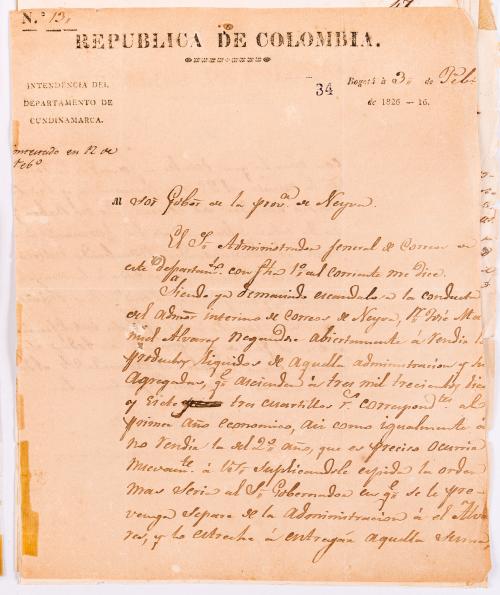 N.º 131
REPUBLICA DE COLOMBIA.
34
Bogotá á 3 de Feb.
de 1826 — 16.
INTENDENCIA DEL
DEPARTAMENTO DE
CUNDINAMARCA.
en 12 de
Feb.º
Al Sor. Gobor. de la prova. de Neyva.
El Sr. Administrador general de Correos de
este Departamto. con fha 1º. del corriente me dice.
Siendo ya demaciado escandalosa la conducta
del admor. interino de correos de Neyva, Sr. José Ma-
nuel Alvarez negandose abiertamente á rendir los
productos liquidos de aquella administracion y sus
agregadas, qe. asciende á tres mil trecientos diez
y siete tres cuartillos rs. correspondtes. al
primer año economico, asi como igualmente á
no rendir la del 2º. año, que es preciso ocurrir
nuevamte. á VS. suplicandole expida la orden
mas seria al Sr. Gobernador en qe. se le pre-
venga separe de la administracion á el Alva-
res, y lo estreche á entregar aquella suma,